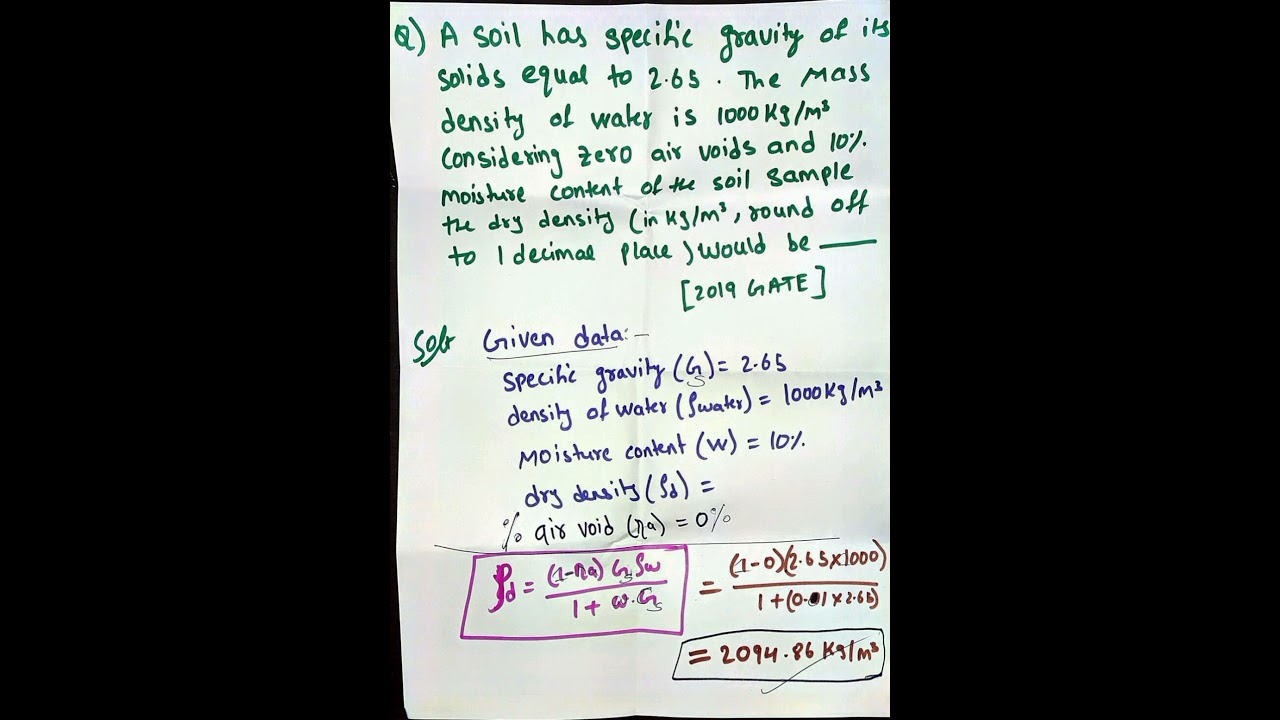 Q) A soil has specific gravity of its
solids equal to 2.65. The Mass
density of water is 1000 Kg/m³
Considering zero air voids and 10%.
moisture content of the soil sample
the dry density (in Kg/m³, round off
to 1 decimal place) would be ———
[2019 GATE]
Sol:- Given data:-
Specific gravity (Gs) = 2.65
density of water (ρwater) = 1000 Kg/m³
Moisture content (w) = 10%.
dry density (ρd) =
% air void (ηa) = 0%
ρd = (1-ηa) Gs ρw / 1 + w.Gs = (1-0)(2.65×1000) / 1+(0.1×2.65)
= 2094.86 Kg/m³